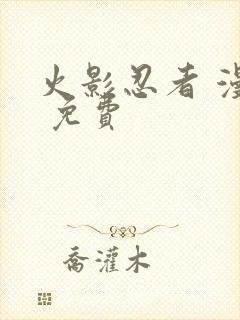 火影忍者 漫
免費
喬灌木